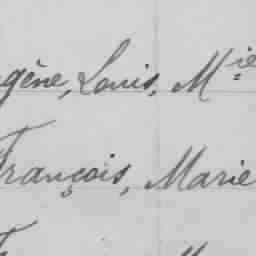 ugène, Louis, Mie
François, Marie